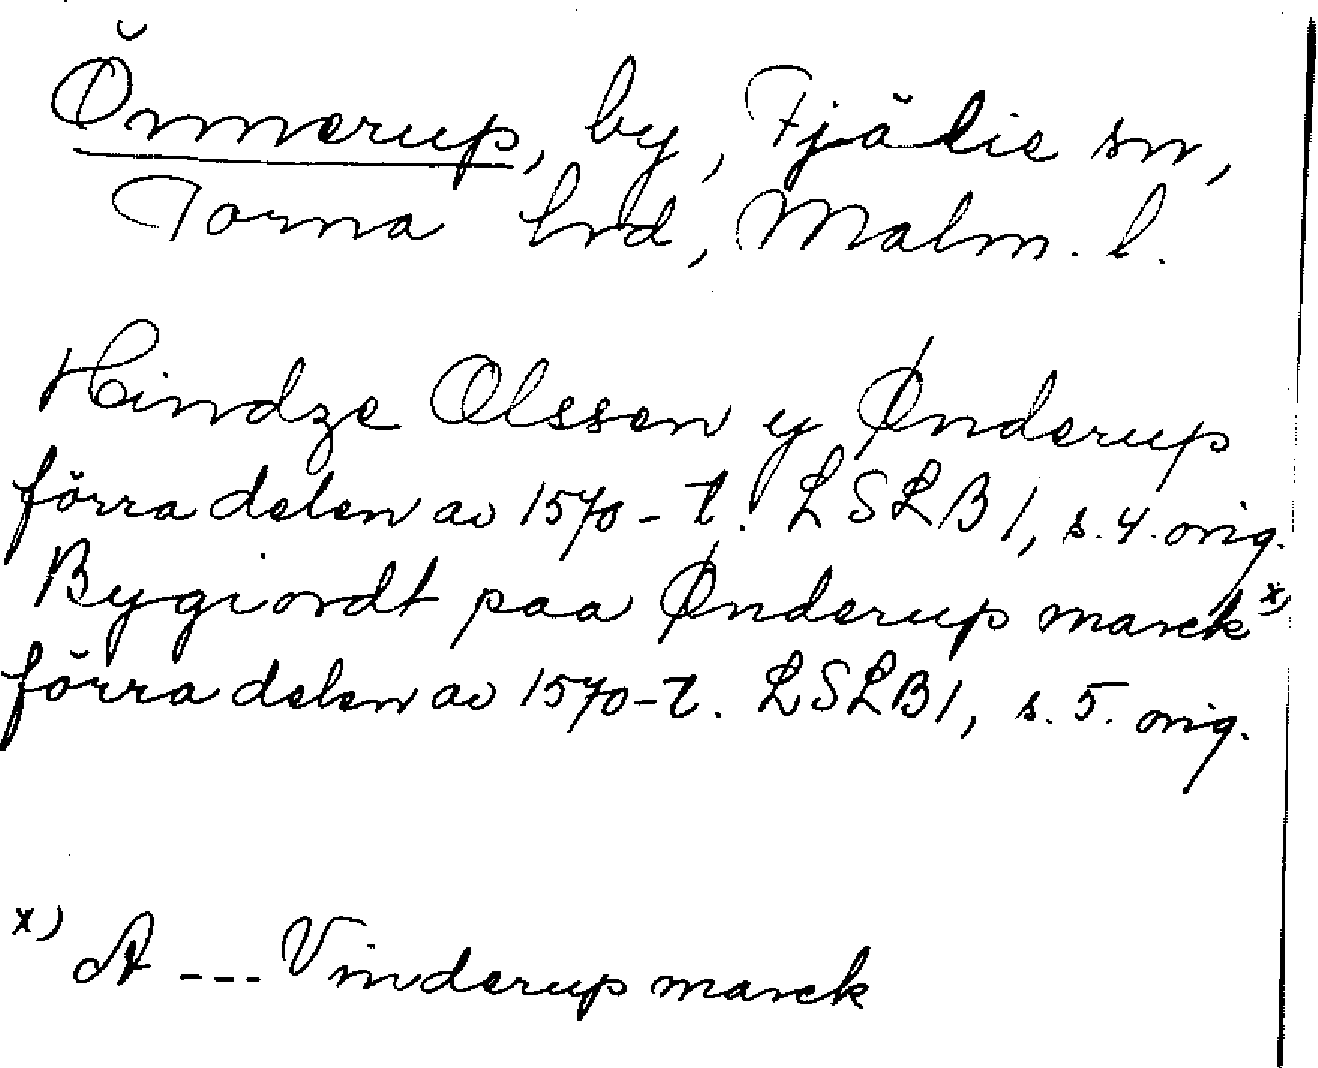 Önnerup, by, Fjälie sn,
Torna hrd, Malm. l.
Hindze Olssen y Ønderup
förra delen av 1570-t. LSLB 1, s. 4. orig.
Bygiordt paa Ønderup marck x)
förra delen av 1570-t. LSLB 1, s. 5. orig.
x) A --- Vinderup marck